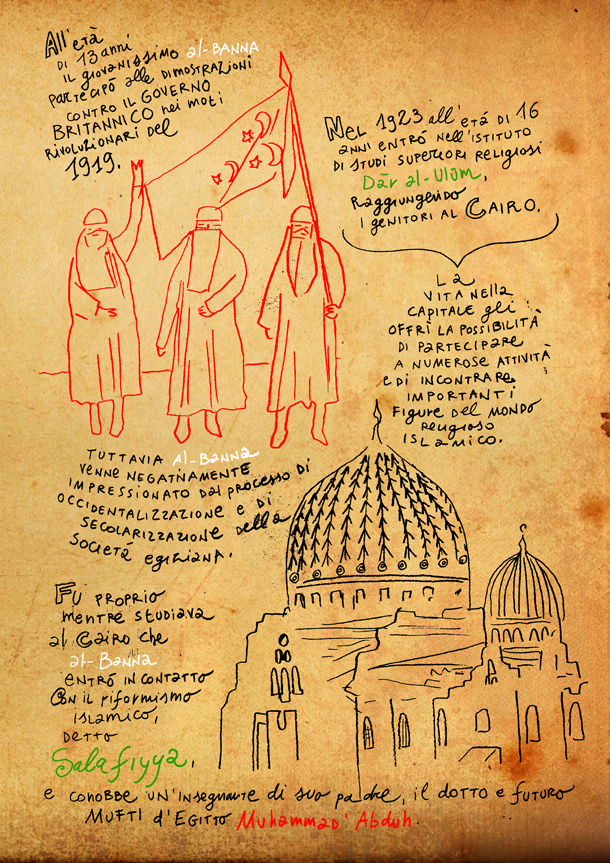 All'età
di 13 anni
il giovanissimo al-Banna
partecipò alle dimostrazioni
contro il governo
britannico nei moti
rivoluzionari del
1919.
Nel 1923 all'etá di 16
anni entró nell'istituto
di studi superiori religiosi
Dār al-Ulūm,
raggiungendo
i genitori al Cairo.
La
vita nella
capitale gli
offrì la possibilità
di partecipare
a numerose attività
e di incontrare
importanti
figure del mondo
religioso
islamico.
Tuttavia al-Banna
venne negativamente
impressionato dal processo di
occidentalizzazione e di
secolarizzazione della
societá egiziana.
Fu proprio
mentre studiava
al Cairo che
al-Banna
entró in contatto
con il riformismo
islamico,
detto
Salafiyya,
e conobbe un'insegnante di suo padre, il dotto e futuro
mufti d'Egitto Muhammad 'Abduh.